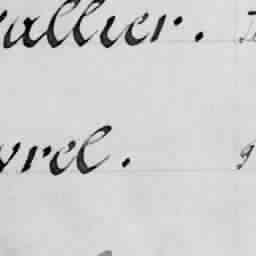 allier.
vrel.